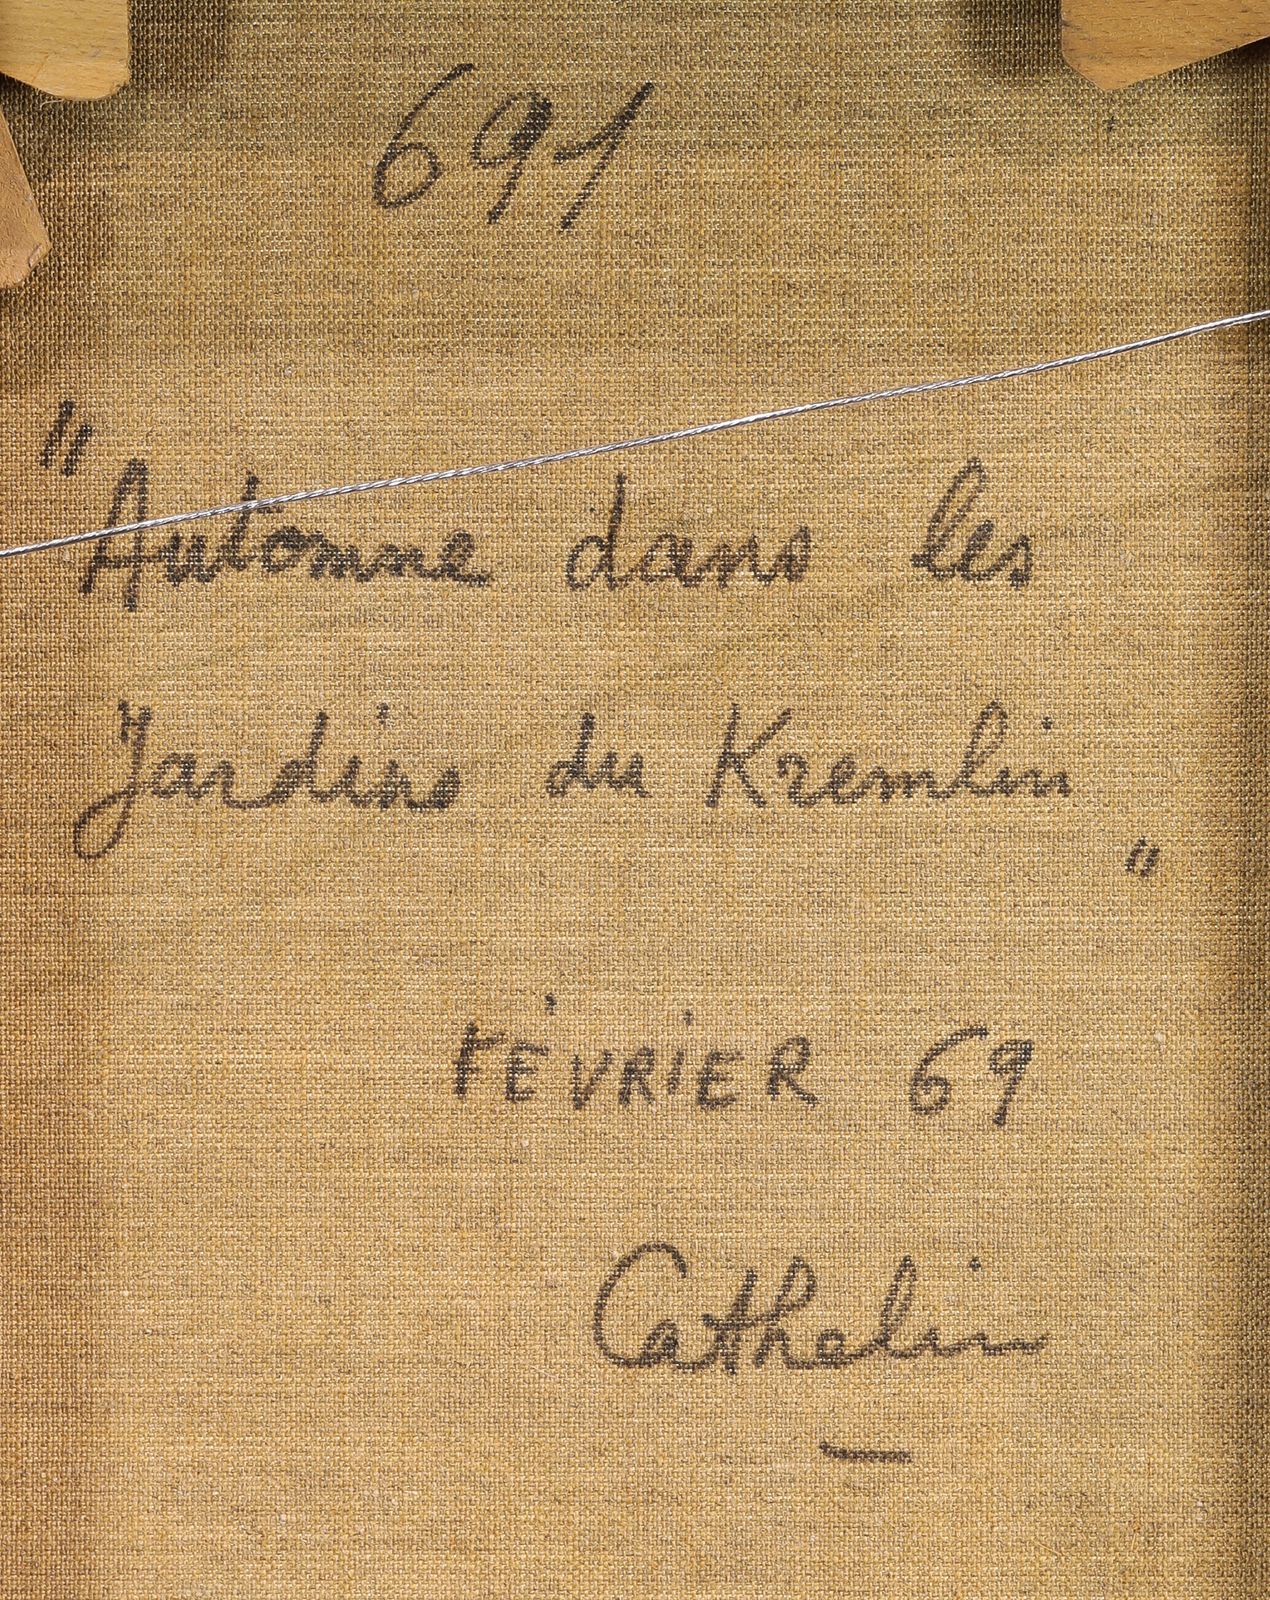 691
"Automne dans les
Jardins du Kremlin
"
FÉVRIER 69
Cathelin